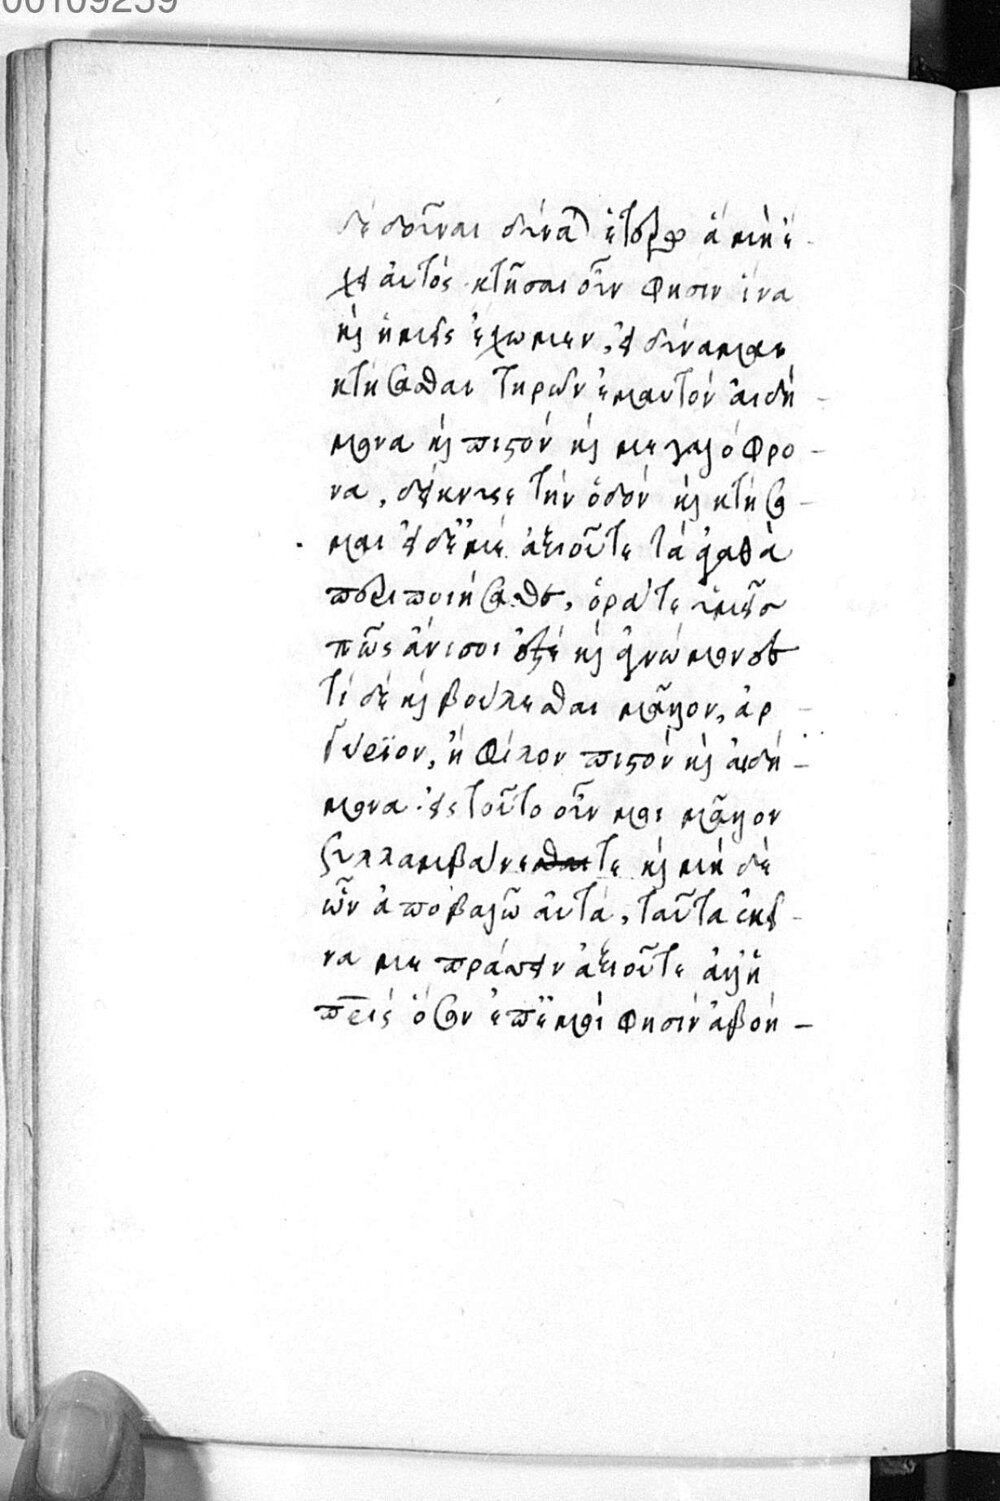 00109259
δὲ δοῦναι δύναται ἑτέρῳ ἃ μὴ ἔ-
χει αὐτός· κτῆσαι οὖν φησιν ἵνα
καὶ ἡμεῖς ἔχωμεν, εἰ δύναμαι
κτήσασθαι τηρῶν ἐμαυτὸν αἰδή-
μονα καὶ πιστὸν καὶ μεγαλόφρο-
να, δείκνυτε τὴν ὁδὸν καὶ κτήσο-
μαι· εἰ δὲ ἐμὲ ἀξιοῦτε τὰ ἀγαθὰ
περιποιήσησθε, ὁρᾶτε ὑμεῖς
πῶς ἄνισοι ἐστέ καὶ ἀγνώμονες
τί δὲ καὶ βούλεσθαι μᾶλλον, ἀρ-
γύριον, ἢ φίλον πιστὸν καὶ αἰδή-
μονα· εἰς τοῦτο οὖν μοι μᾶλλον
συλλαμβάνετε καὶ μὴ δι'
ὧν ἀποβαλῶ αὐτά, ταῦτα ἐκεῖ-
να με πράσσειν ἀξιοῦτε ἀλλ' ἡ
πατρὶς ὅσον ἐπ' ἐμοί φησιν ἀβοή-